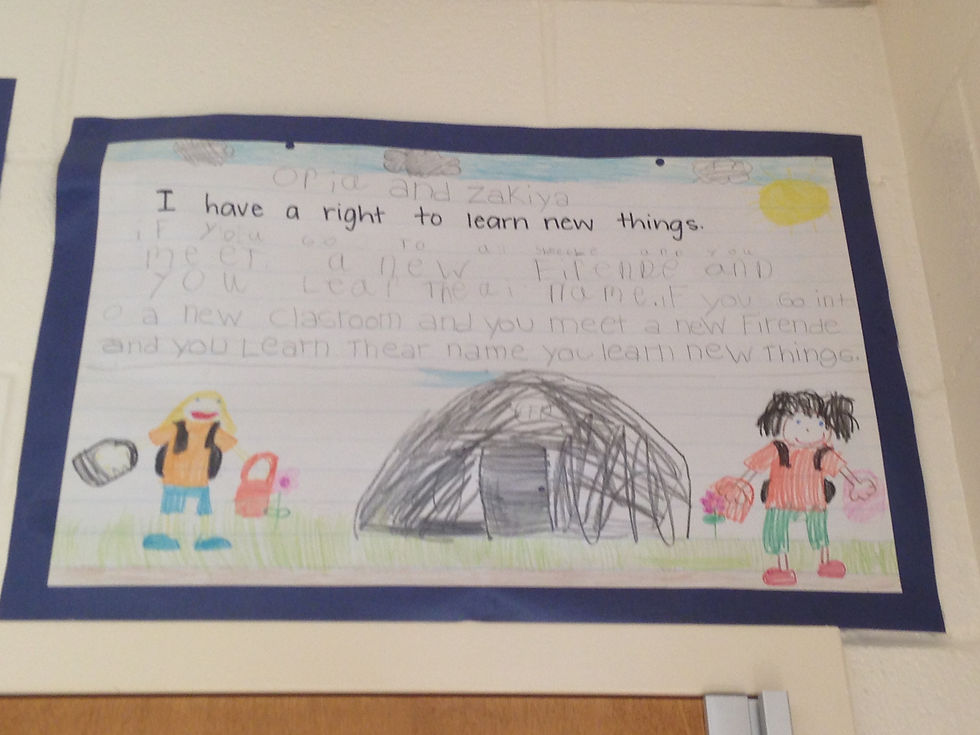 Opia and Zakiya
I have a right to learn new things.
if you Go To a and you
meet a new Firende and
you Lear Theai name. if you Go int
o a new clasroom and you meet a new Firende
and you Learn Thear name you learn new Things.